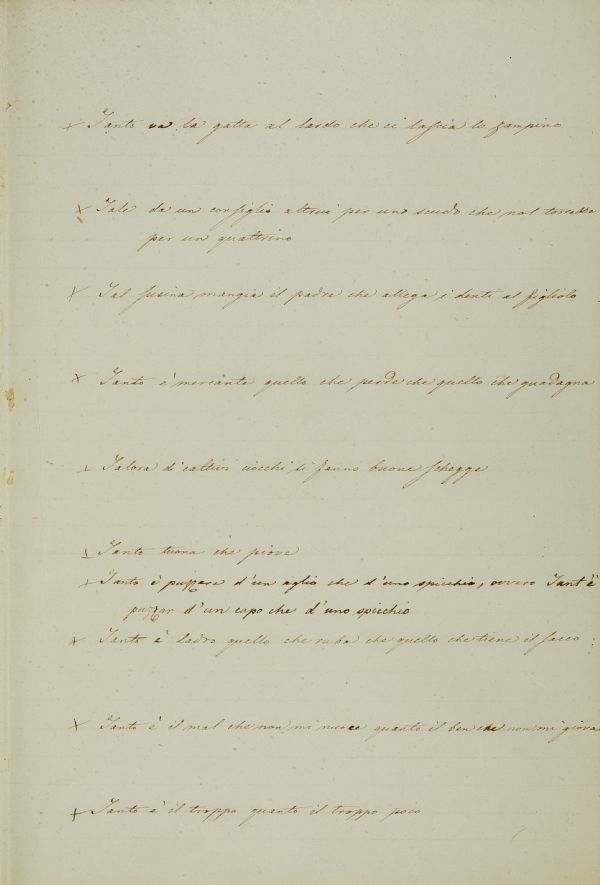 × Tanto va la gatta al lardo che ci lascia lo zampino
× Tale da un consiglio altrui per uno scudo che nol torrebbe
per un quattrino
× Tal susina mangia il padre che allega i denti al figliolo
× Tanto è mercante quello che perde che quello che guadagna
Talora di cattivi ciocchi si fanno buone schegge
Tanto tuona che piove
× Tanto è puzzare d'un aglio che d'uno spicchio, ovvero Tant'è
puzzar d'un capo che d'uno spicchio
× Tanto è ladro quello che ruba che quello che tiene il sacco
× Tanto è il mal che non mi nuoce quanto il ben che non mi giova
× Tanto è il troppo quanto il troppo poco